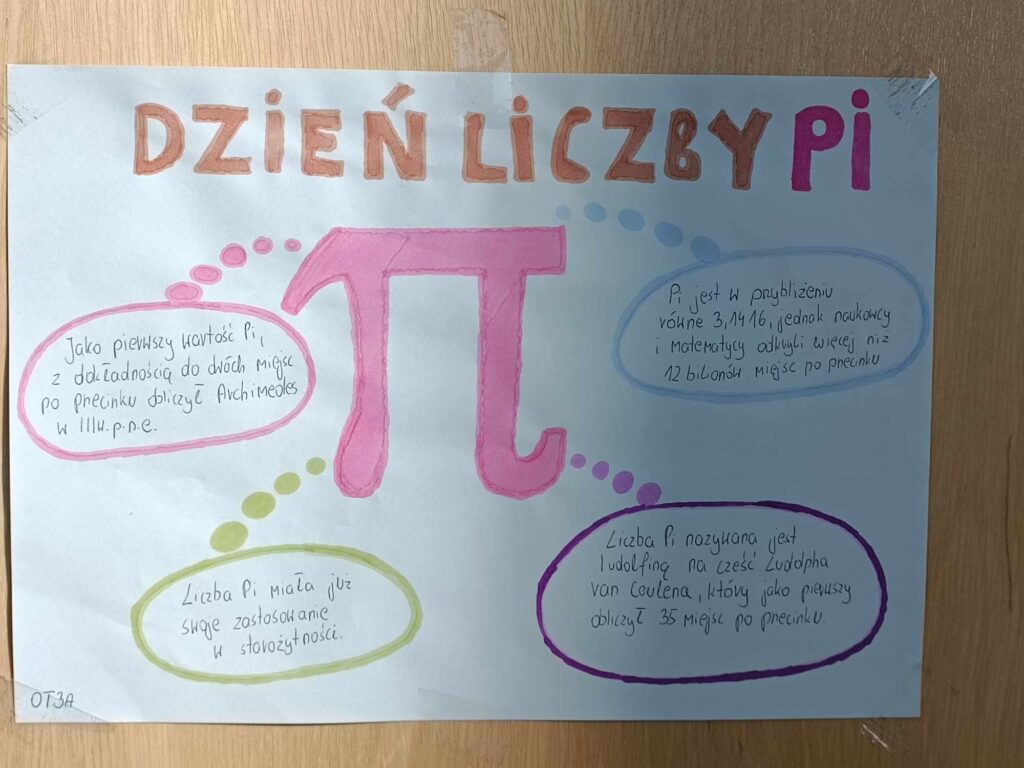 DZIEŃ LICZBY PI
Jako pierwszy wartość Pi,
z dokładnością do dwóch miejsc
po przecinku obliczył Archimedes
w IIIw.p.n.e.
Pi jest w przybliżeniu
równe 3,1416, jednak naukowcy
i matematycy odkryli więcej niż
12 bilionów miejsc po przecinku
Liczba Pi miała już
swoje zastosowanie
w starożytności.
Liczba Pi nazywana jest
ludolfiną na cześć Ludolpha
van Ceulena, który jako pierwszy
obliczył 35 miejsc po przecinku.
OT3A